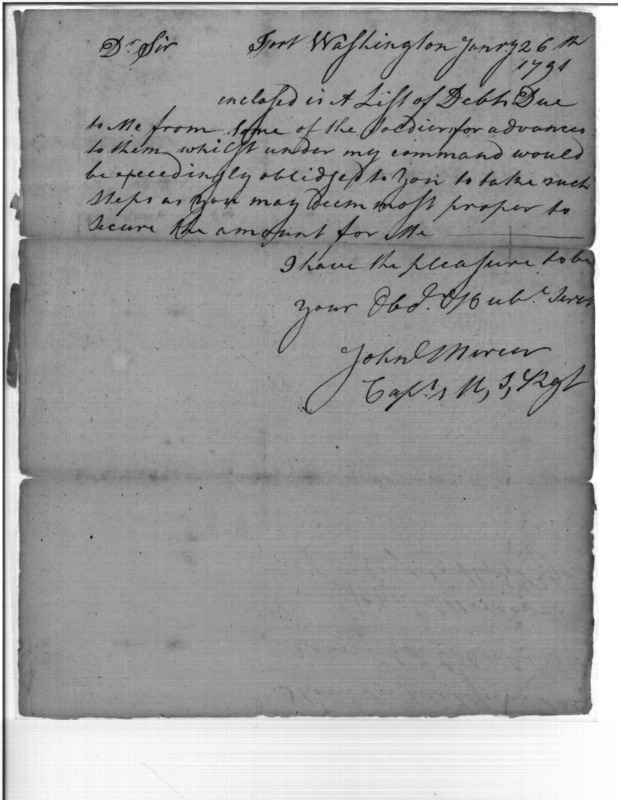 Dr Sir Fort Washington Janry 26th
1791
enclosed is A List of Debts Due
to Me from some of the Soldiers for advances
to them whilst under my command would
be exceedingly oblidged to you to take such
steps as you may deem most proper to
secure the amount for Me
I have the pleasure to be
your Obd. Hubl. Servt
John Mercer
Capt. 1 U, S, Rgt